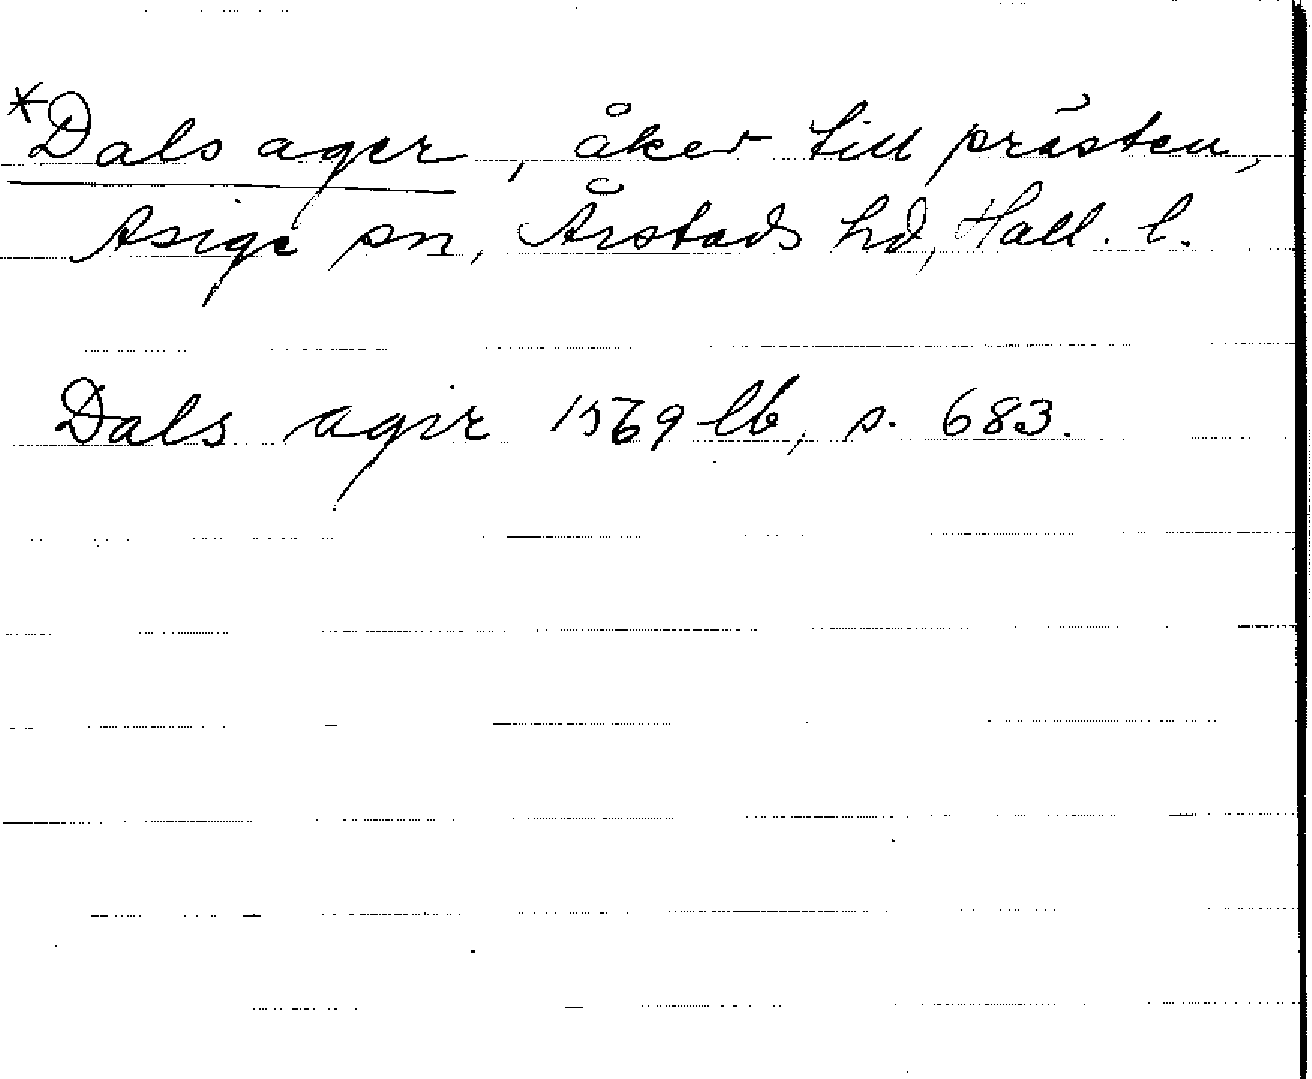 *Dals ager, åker till prästen,
Asige sn, Årstads hd, Hall. l.
Dals agir 1569 lb, s. 683.